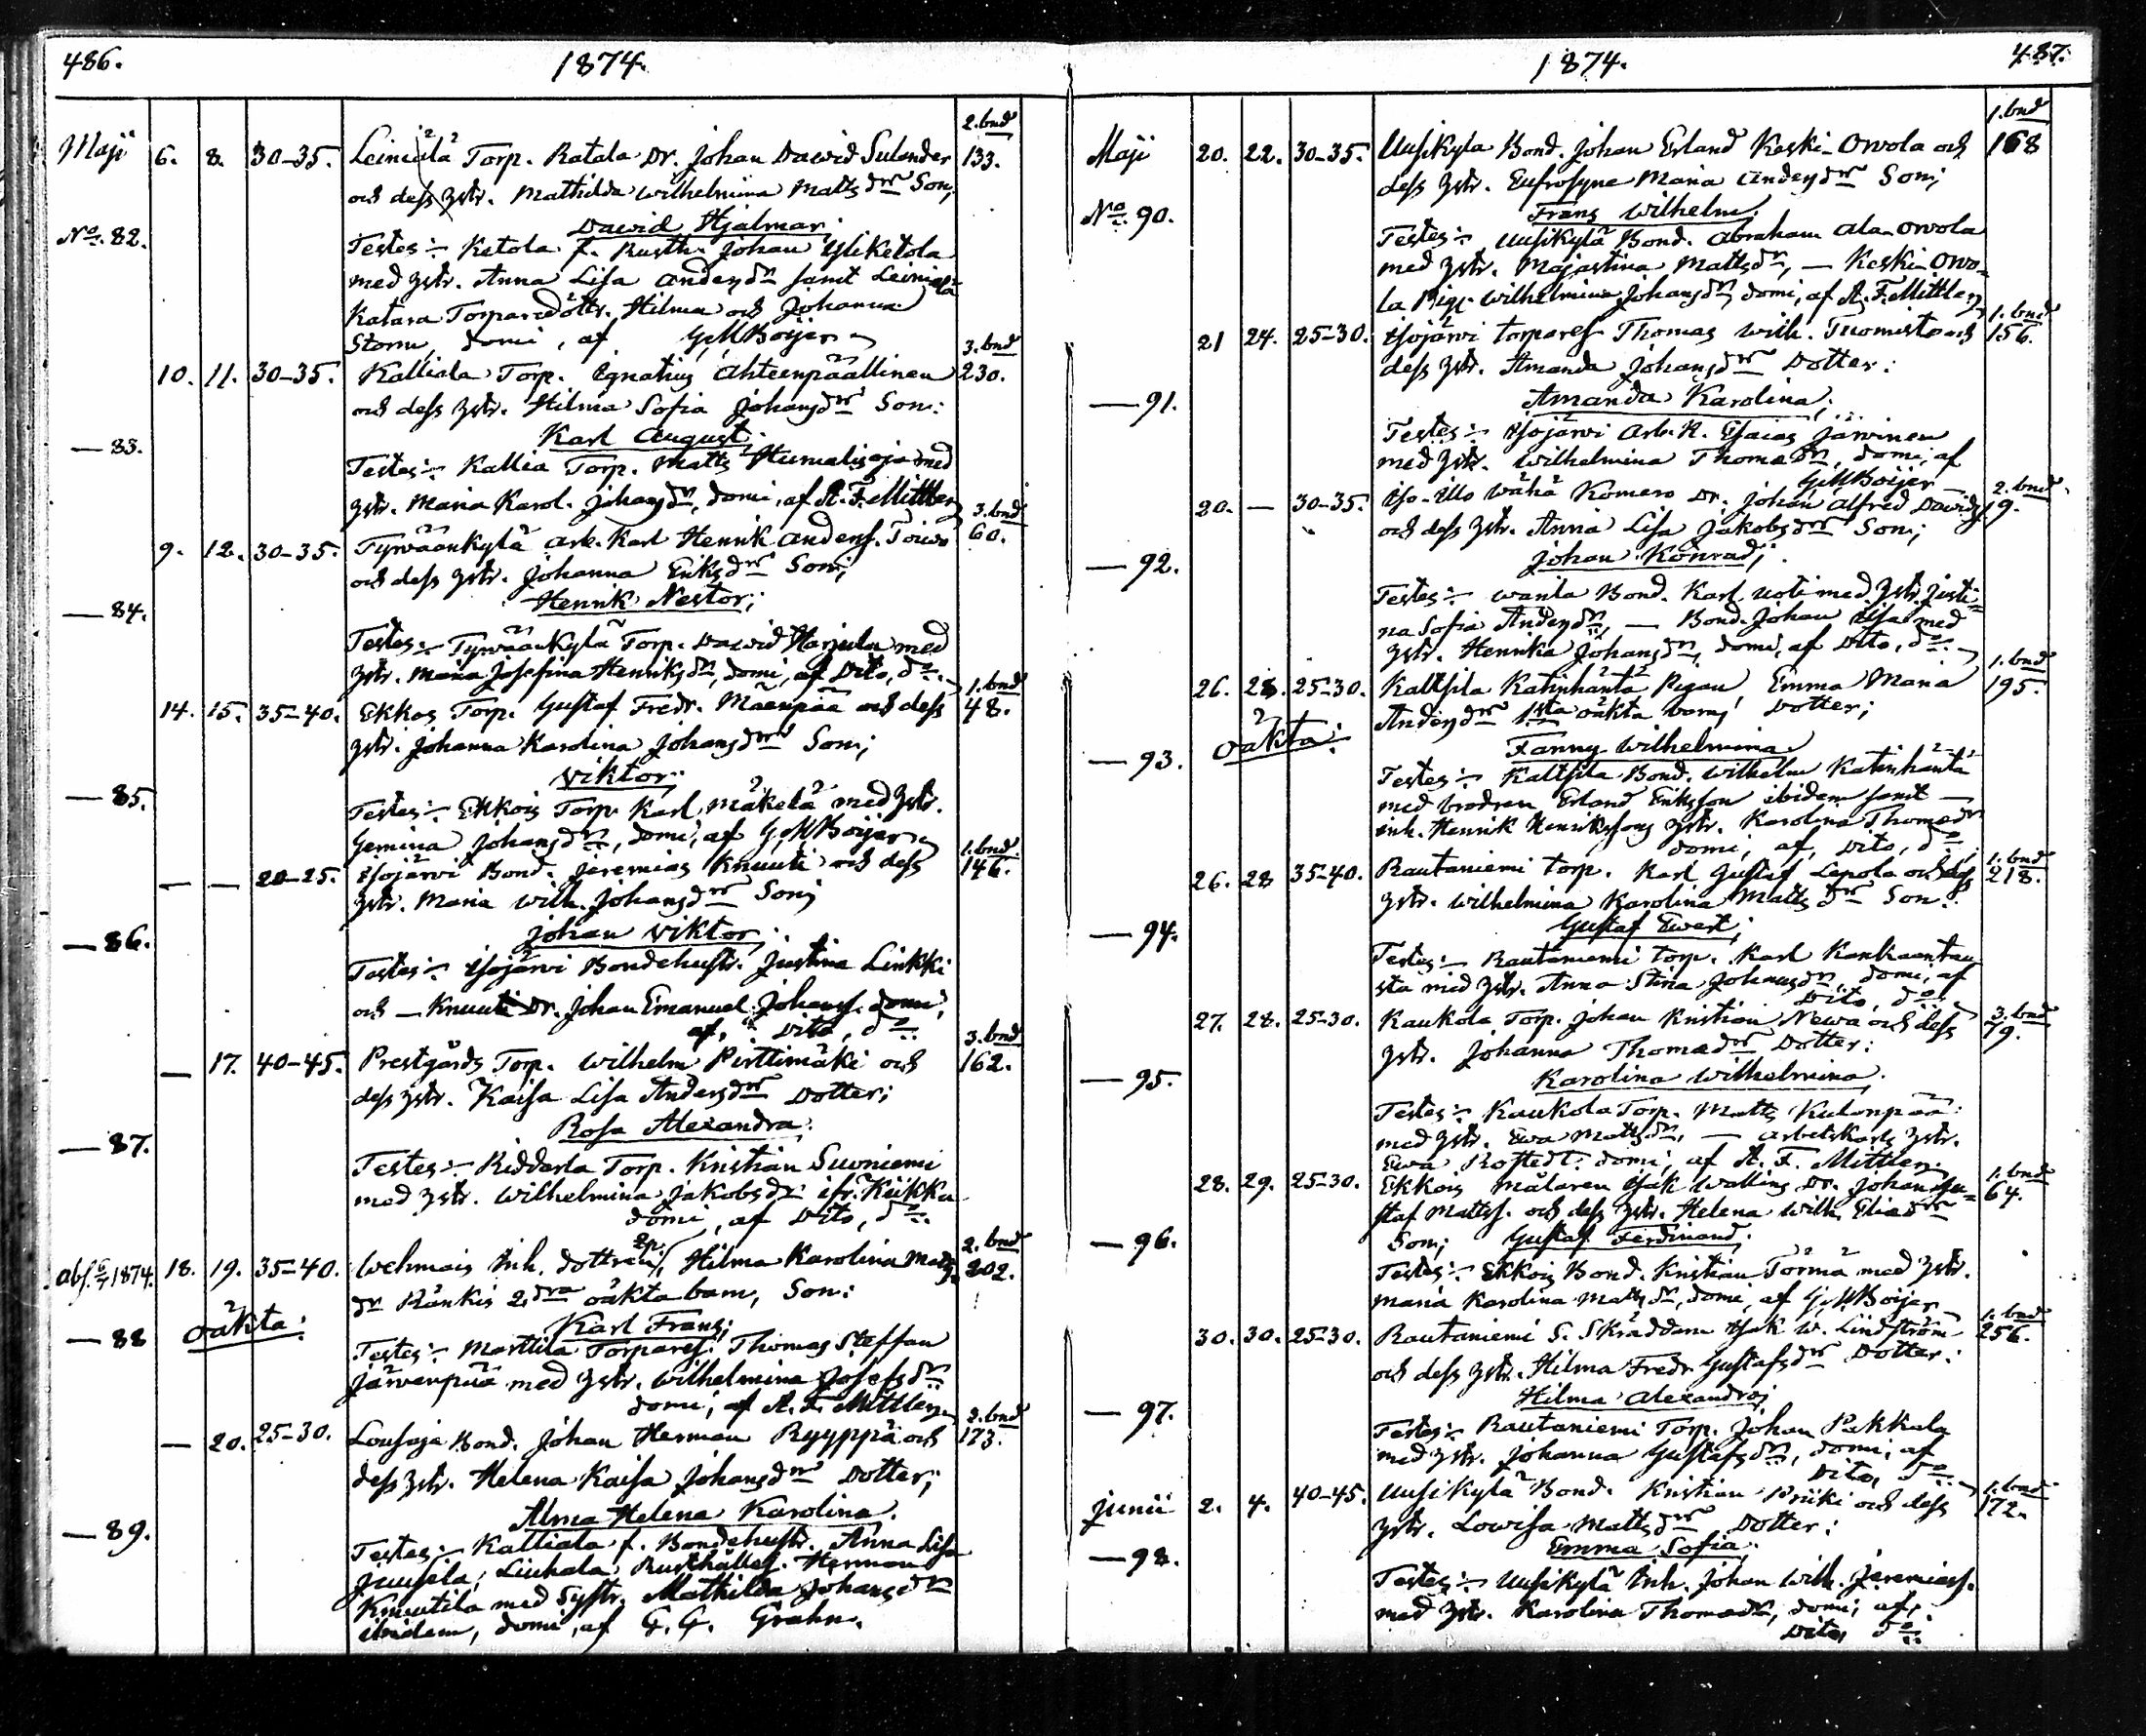 486. 1874.
2. bnd
Maji 6. 8. 30-35. Leiniälä Torp. Ratala Dr. Johan Dawid Sulander 133.
och dess hstr. Mathilda Wilhelmina Matts dr Son;
No. 82. Dawid Hjalmar;
Testes: Ketola f. Rusth. Johan Yliketola
med hstr. Anna Lisa Andersdr samt Leiniälä
Katara Torparedöttr. Hilma och Johanna
Storm, domi, af G. M Boijer
3. bnd
10. 11. 30-35. Kalliala Torp. Egnatius Ahteenpäällinen 230.
och dess hstr. Hilma Sofia Johansdr Son:
Karl August;
— 83. Testes: Kallia Torp. Matts Humalisoja med
hstr. Maria Karol. Johansdr, domi, af A. F. Mittler
3. bnd
9. 12. 30-35. Tyrväänkylä arb. Karl Henrik Anders. Toiwo 60.
och dess hstr. Johanna Eriksdr Son;
Henrik Nestor;
— 84.
Testes: Tyrväänkylä Torp. Dawid Harjula med
hstr. Maria Josefina Henriksdr, domi, af Dito, do.
1. bnd
14. 15. 35-40. Ekkos Torp. Gustaf Fredr. Mäenpää och dess 48.
hstr. Johanna Karolina Johansdr Son;
Viktor;
— 85. Testes: Ekkois Torp. Karl Mäkelä med hstr.
Gemina Johansdr, domi, af G. M Boijer
1. bnd
— — 20-25. Isojärwi Bond. Jeremias Knuuti och dess 146.
hstr. Maria Wilh. Johansdr Son;
Johan Viktor;
— 86.
Testes: Isojärwi Bondehustr. Justina Linkki
och — Knuuti Dr. Johan Emanuel Johanss. domi,
af, Dito, do.
3. bnd
— 17. 40-45. Prestgårds Torp. Wilhelm Pirttimäki och 162.
dess hstr. Kaisa Lisa Andersdr Dotter;
Rosa Alexandra.
— 87.
Testes: Riddarla Torp. Kristian Suoniemi
med hstr. Wilhelmina Jakobsdr ifr. Kiikka
domi, af Dito, do.
2. bnd
abs. 1874. 18. 19. 35-40. Wehmais Inh. dottren, Hilma Karolina Matts 202.
dr Ränkis 2dra oäkta barn, Son:
oäkta: Karl Frans;
— 88 Testes: Marttila Torpares. Thomas Steffan
Järwenpää med hstr. Wilhelmina Josefsdr
domi, af A. F. Mittler
2. bnd
— 20. 25-30. Lousaja Bond. Johan Herman Ryyppä och 173.
dess hstr. Helena Kaisa Johansdr Dotter;
Alma Helena Karolina.
— 89. Testes: Kalliala f. Bondehustr. Anna Lisa
Juusela; Liuhala Rusthålles. Herman
Knuutila med Systr. Mathilda Johansdr
ibidem, domi, af G. G. Grahn.
1874. 487.
1. bnd
Maji 20. 22. 30-35. Uusikyla Bond. Johan Erland Keski-Orwola och 168
dess hstr. Eufrosyne Maria Andersdr Son;
No. 90. Frans Wilhelm;
Testes: Uusikylä Bond. Abraham Ala-Orwola
med hstr. Majastina Mattsdr, — Keski Orwo-
la Pig. Wilhelmina Johansdr, domi, af A. F. Mittler
1. bnd
21 24. 25-30. Isojärwi torpares Thomas Wilh. Tuomisto och 156.
dess hstr. Amanda Johansdr Dotter:
— 91. Amanda Karolina;
Testes: Isojärwi Arb. K. Esaias Järwinen
med hstr. Wilhelmina Thomadr, domi, af
G M Boijer
2. bnd
20. — 30-35. Iso-Illo Wähä Komero Dr. Johan Alfred Davids 19.
och dess hstr. Anna Lisa Jakobsdr Son;
— 92. Johan Konrad;
Testes: Wanla Bond. Karl Uoti med hstr. Justi-
na Sofia Andersdr, — Bond. Johan med
hstr. Henrika Johansdr, domi, af Dito, do.
1. bnd
26. 28. 25-30. Kaltsila Katinhäntä Pigan, Emma Maria 195.
Andersdr 1sta oäkta barn, Dotter;
— 93. oäkta: Fanny Wilhelmina.
Testes: Kaltsila Bond. Wilhelm Katinhäntä
med brodren Erland Eriksson ibidem samt —
inh. Henrik Henrikssons hstr. Karolina Thomadr
domi, af, Dito, do
1. bnd
26. 28 35-40. Rautaniemi torp. Karl Gustaf Lepola och dess 218.
hstr. Wilhelmina Karolina Matts dr Son:
— 94. Gustaf Ewert;
Testes: Rautaniemi torp. Karl Kankaantau
sta med hstr. Anna Stina Johansdr, domi, af
Dito, do.
3. bnd
27. 28. 25-30. Kaukola Torp. Johan Kristian Newa och dess 79.
hstr. Johanna Thomadr Dotter:
— 95. Karolina Wilhelmina.
Testes: Kaukola Torp. Matts Kulonpää
med hstr. Ewa Mattsdr, — arbetskarls hstr.
Ewa Rostedt. domi, af A. F. Mittler
1. bnd
28. 29. 25-30. Ekkois Mälaren Isak Wallins Dr. Johan Gu- 64.
staf Matts. och dess hstr. Helena Wilh. Eliadr
— 96. Son; Gustaf Ferdinand;
Testes: Ekkois Bond. Kristian Törmä med hstr.
Maria Karolina Mattsdr, domi, af G M Boijer
1. bnd
30. 30. 25-30. Rautaniemi S. Skräddaren Isak W. Lindström 256.
och dess hstr. Hilma Fredr. Gustafsdr Dotter:
Hilma Alexandra;
— 97.
Testes: Rautaniemi Torp. Johan Pakkala
med hstr. Johanna Gustafsdr, domi, af
Dito, do.
1. bnd
Junii 2. 4. 40-45. Uusikylä Bond. Kristian Priiki och dess 172.
hstr. Lowisa Mattsdr Dotter:
— 98. Emma Sofia;
Testes: Uusikylä Inh. Johan Wilh. Jeremiass.
med hstr. Karolina Thomadr, domi, af,
Dito, do.